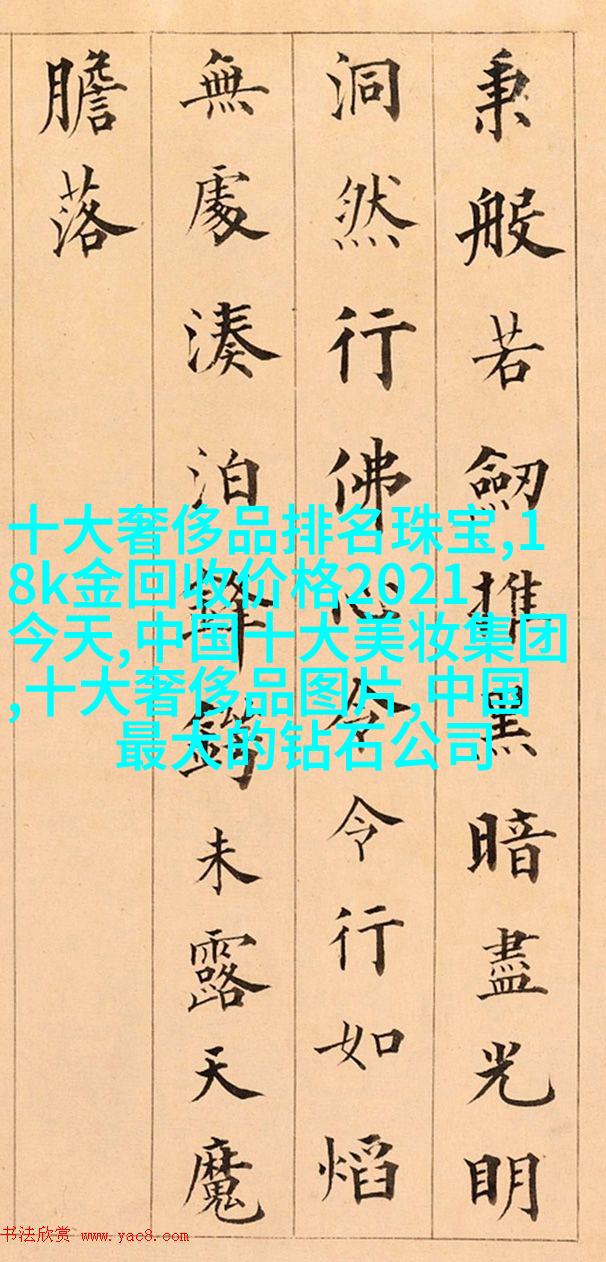 秉般若劔推黑暗盡光明
洞然行佛心令令行如熖
無處湊泊鋒未露天魔
膽落
十大奢侈品排名珠宝,1
8k金回收价格2021
今天,中国十大美妆集团
,十大奢侈品图片,中国
最大的钻石公司
书法欣赏 www.yac8.com